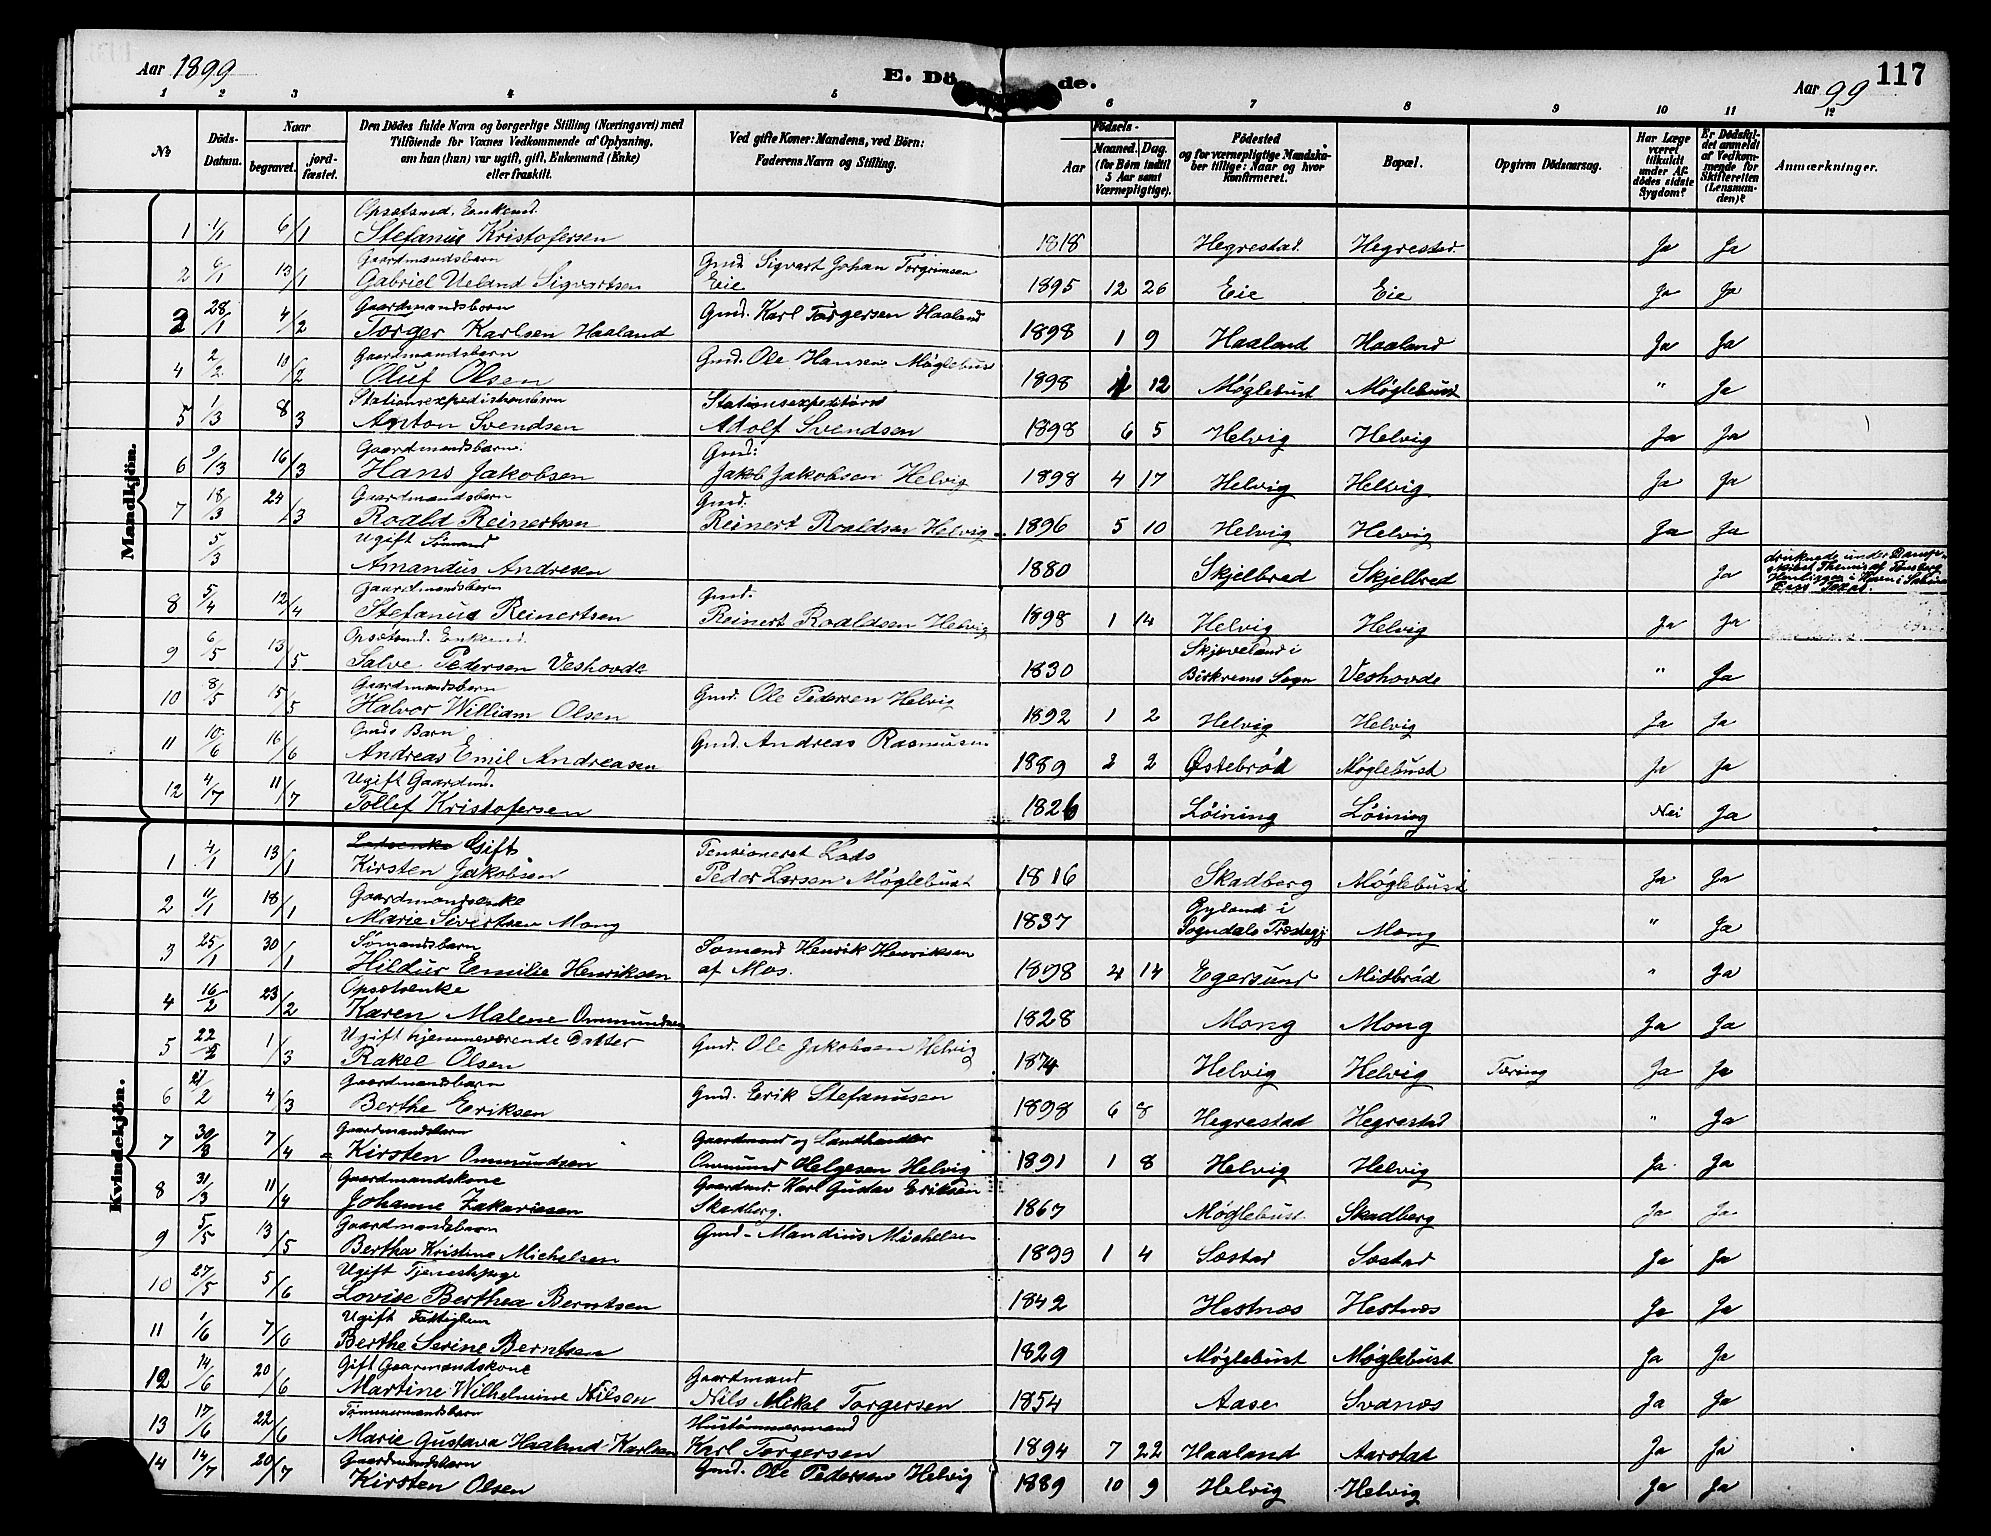 Aar 1899
E. Dö de.
Aar 99
117
1 2 3 4 5 6 7 8 9 10 11 12
No
Döds-Datum.
Naar
begravet. jord-fæstet.
Den Dödes fulde Navn og borgerlige Stilling (Næringsvei) med Tilföiende for Voxnes Vedkommende af Oplysning, om han (hun) var ugift, gift, Enkemand (Enke) eller fraskilt.
Ved gifte Koner: Mandens, ved Börn: Faderens Navn og Stilling.
Födsels-
Aar
Maaned. Dag.
(for Börn indtil 5 Aar samt Værnepligtige).
Födested og for værnepligtige Mandskaber tillige: Naar og hvor konfirmeret.
Bopæl.
Opgiven Dödsaarsag.
Har Læge været tilkaldt under Afdödes sidste Sygdom?
Er Dödsfaldet anmeldt af Vedkommende for Skifteretten (Lensmanden)?
Anmærkninger.
Mandkjön.
Opsætsmd. Enkemd.
1 1/1 6/1 Stefanus Kristofersen 1818 Hegrestad Hegrestad Ja Ja
Gaardmandsbarn Gmd. Sigvart Johan Torgrimsen
2 6/1 13/1 Gabriel Ueland Sigvartsen Eie 1895 12 26 Eie Eie Ja Ja
Gaardmandsbarn
3 28/1 4/2 Torger Karlsen Haaland Gmd. Karl Torgersen Haaland 1898 1 9 Haaland Haaland Ja Ja
Gaardmandsbarn
4 2/2 10/2 Oluf Olsen Gmd. Ole Hansen Møglebust 1898 12 Møglebust Møglebust " Ja
Stationsexpeditørsbarn Stationsexpeditør
5 1/3 8/3 Anton Svendsen Adolf Svendsen 1898 6 5 Helvig Helvig Ja Ja
Gaardmandsbarn Gmd:
6 9/3 16/3 Hans Jakobsen Jakob Jakobsen Helvig 1898 4 17 Helvig Helvig Ja Ja
Gaardmandsbarn Gmd.
7 18/3 24/3 Roald Reinertsen Reinert Roaldsen Helvig 1896 5 10 Helvig Helvig Ja Ja
Ugift Sømand
5/3 Amandus Andresen 1880 Skjelbred Skjelbred Ja druknede under Damp-
skibet Themis af Tønsberg
Henliggen i Havn i Sabine
Pass Texas.
Gaardmandsbarn Gmd.
8 5/4 12/4 Stefanus Reinertsen Reinert Roaldsen Helvig 1898 1 14 Helvig Helvig Ja Ja
Opsætsmd. Enkemd. Skjæveland i
9 6/5 13/5 Salve Pedersen Veshovde 1830 Birkrems Sogn Veshovde " Ja
Gaardmandsbarn
10 8/5 15/5 Halvor William Olsen Gmd. Ole Pedersen Helvig 1892 1 2 Helvig Helvig Ja Ja
Gmds Barn
11 10/6 16/6 Andreas Emil Andreasen Gmd. Andreas Rasmussen 1889 2 2 Østebrød Møglebust Ja Ja
Ugift Gaardmd.
12 4/7 11/7 Tollef Kristofersen 1826 Løining Løining Nei Ja
Kvindekjön.
Lodsenke Gift Pensioneret Lods
1 4/1 13/1 Kirsten Jakobsen Peder Larsen Møglebust 1816 Skadberg Møglebust Ja Ja
Gaardmandsenke Gyland i
2 11/1 18/1 Marie Sivertsen Mong 1837 Sogndals Præstegj Mong " Ja
Sømandsbarn Sømand Henrik Henriksen
3 25/1 30/1 Hildur Emilie Henriksen af Mos. 1898 4 14 Egersund Midbrød " Ja
Opsætsenke
4 16/2 23/2 Karen Malene Ommundsen 1828 Mong Mong Ja Ja
Ugift hjemmeværende Datter
5 22/2 1/3 Rakel Olsen Gmd. Ole Jakobsen Helvig 1874 Helvig Helvig Tæring Ja Ja
Gaardmandsbarn
6 21/2 4/3 Berthe Eriksen Gmd. Erik Stefanusen 1898 6 8 Hegrestad Hegrestad " Ja
Gaardmandsbarn Gaardmand og Landhandler
7 30/3 7/4 Kirsten Ommundsen Ommund Helgesen Helvig 1891 1 8 Helvig Helvig Ja Ja
Gaardmandskone Gaardmd. Karl Gustav Eriksen
8 31/3 11/4 Johanne Zakariasen Skadberg. 1867 Møglebust Skadberg Ja Ja
Gaardmandsbarn
9 5/5 13/5 Bertha Kristine Michelsen Gmd. Mandius Michelsen 1899 1 4 Søstad Søstad Ja Ja
Ugift Tjenestpige
10 27/5 5/6 Lovise Berthea Berntsen 1842 Hestnæs Hestnæs Ja Ja
Ugift Fattiglem
11 1/6 7/6 Berthe Serine Berntsen 1829 Møglebust Møglebust Ja Ja
Gift Gaarmandskone Gaardmand
12 14/6 20/6 Martine Wilhelmine Nilsen Nils Mikal Torgersen 1854 Aase Svanæs Ja Ja
Tømmermandsbarn Hustømmermand
13 17/6 22/6 Marie Gustava Haaland Karlsen Karl Torgersen 1894 7 22 Haaland Aarstad Ja Ja
Gaardmandsbarn
14 14/7 20/7 Kirsten Olsen Gmd. Ole Pedersen Helvig 1889 10 9 Helvig Helvig Ja Ja